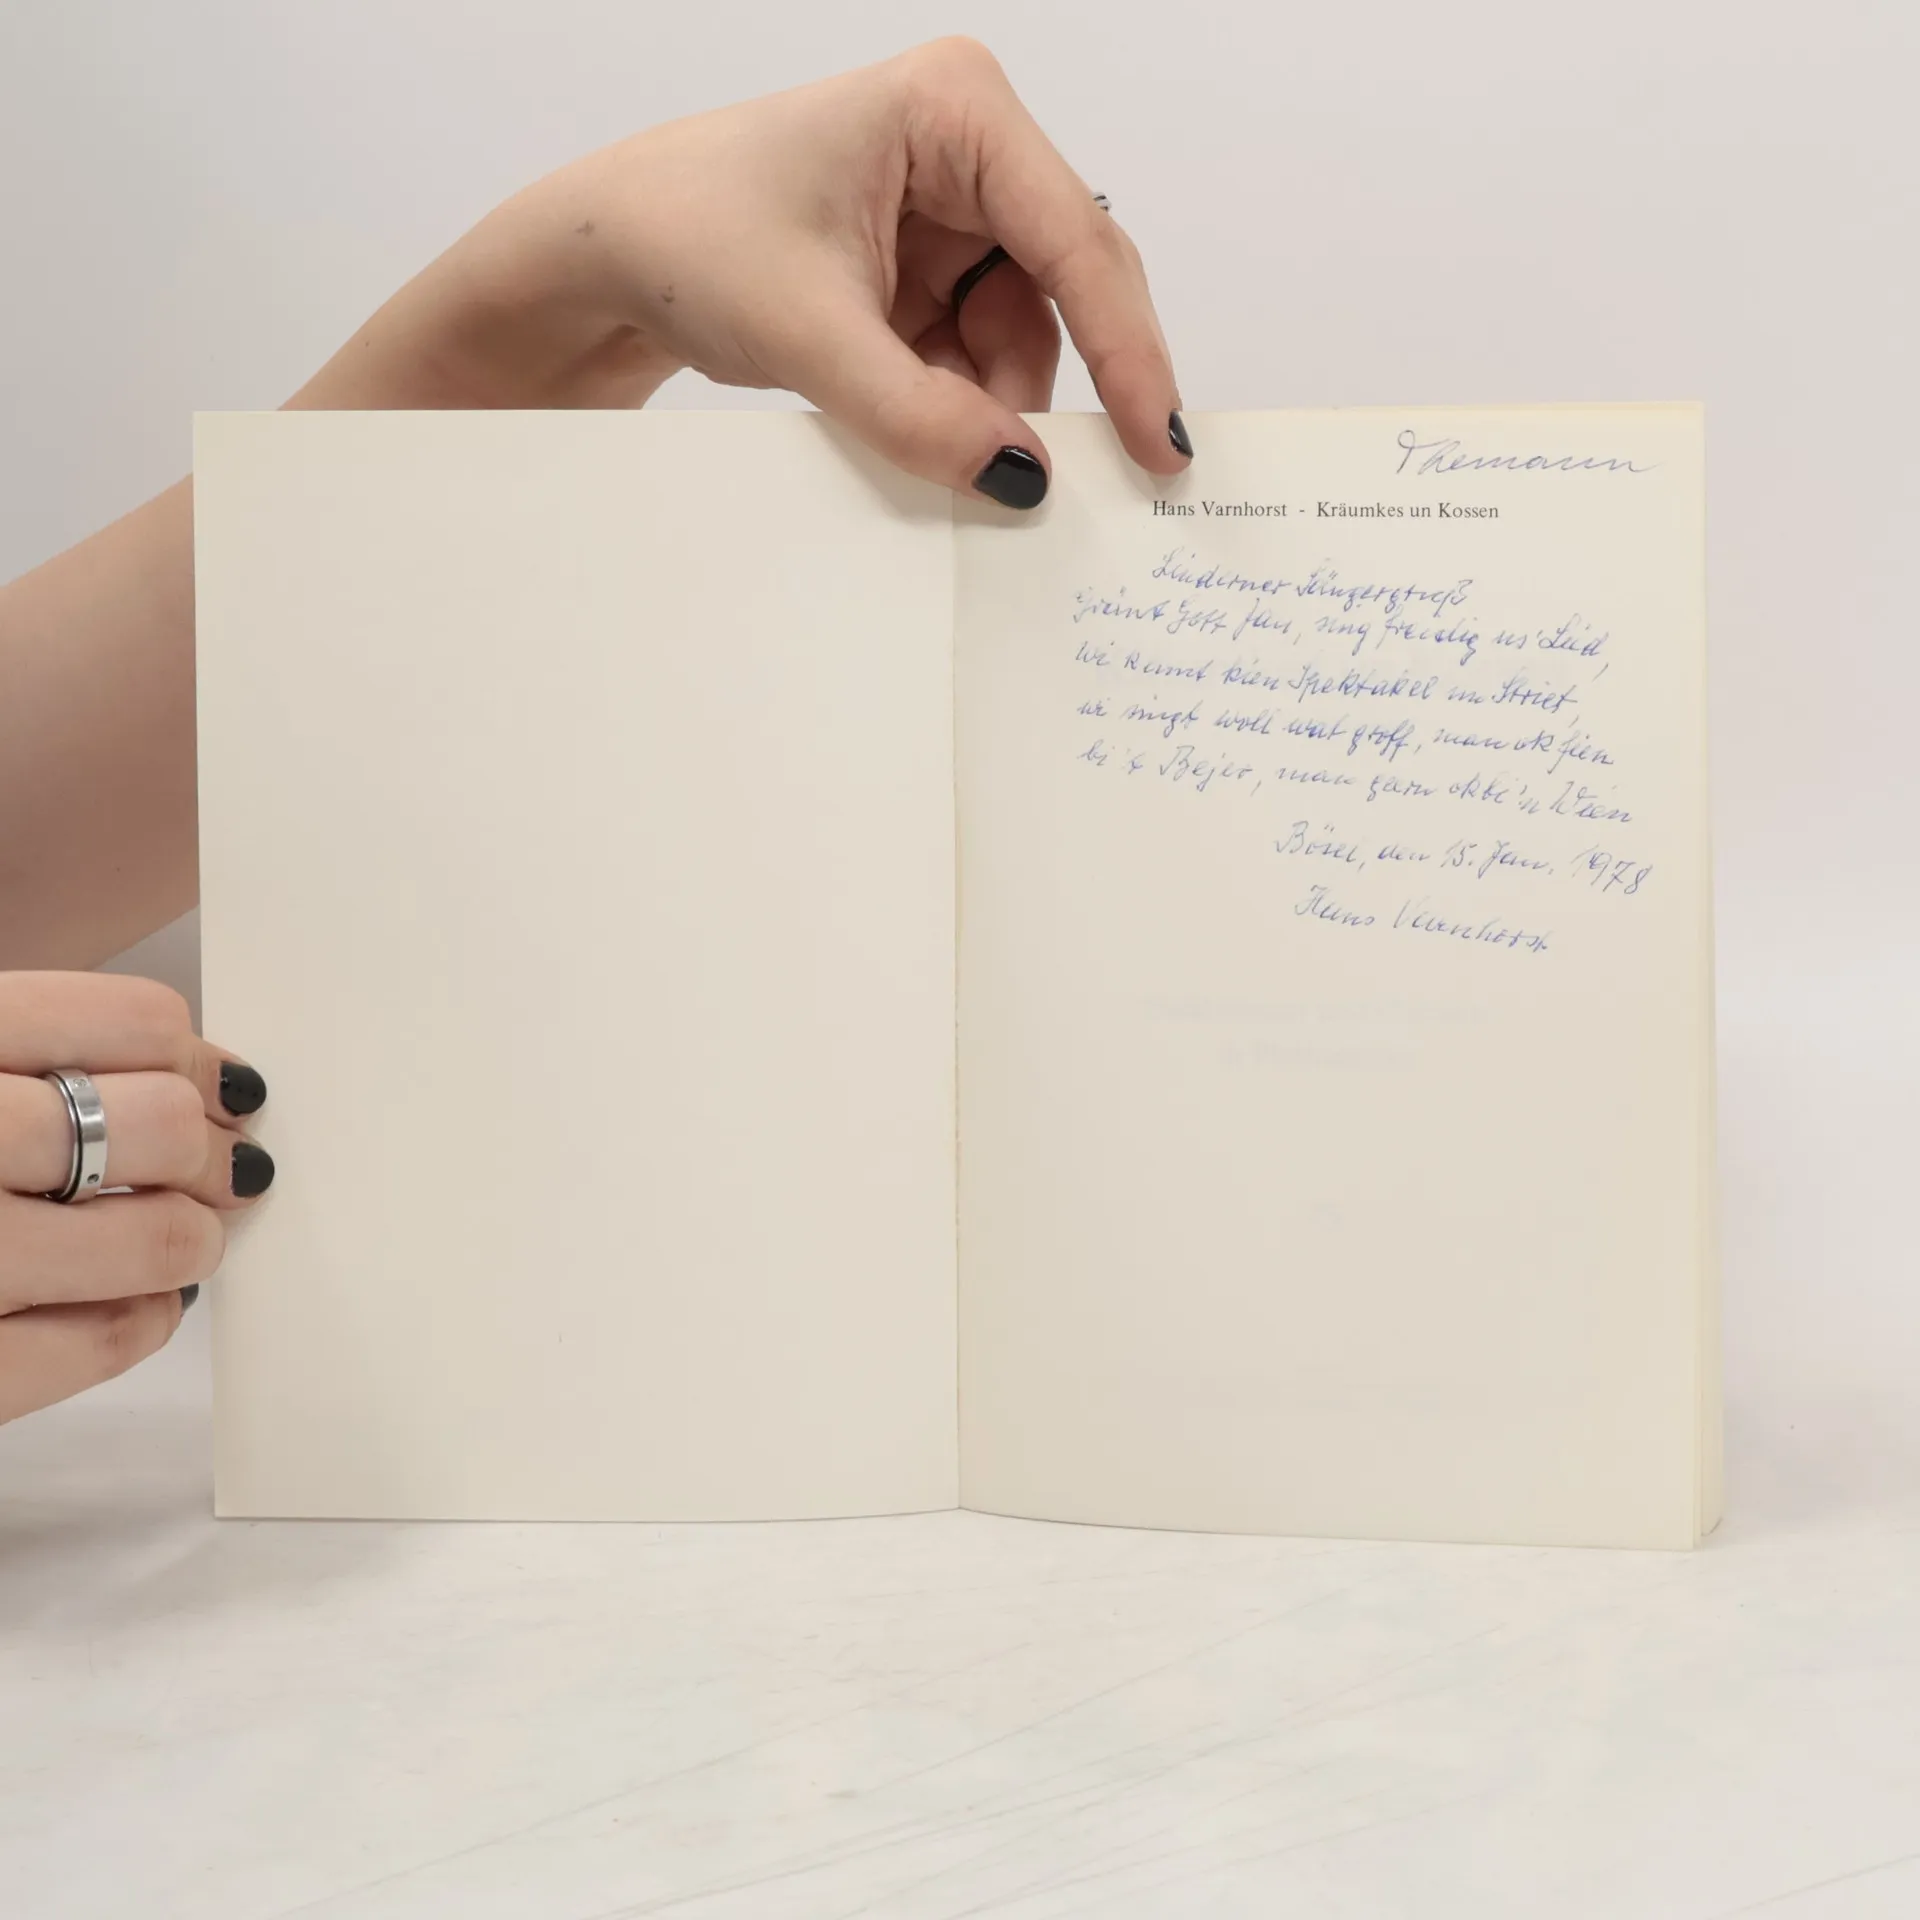 Themann
Hans Varnhorst - Kräumkes un Kossen
Linderner Sängergruß
Gott Jau, sing freidig us' Leid,
wi kennt kien Spektakel un Striet,
wi singt woll wat groff, man ok fien
bi't Bejer, man gern ok bi'n Wien
Bösel, den 15. Jan. 1978
Hans Varnhorst